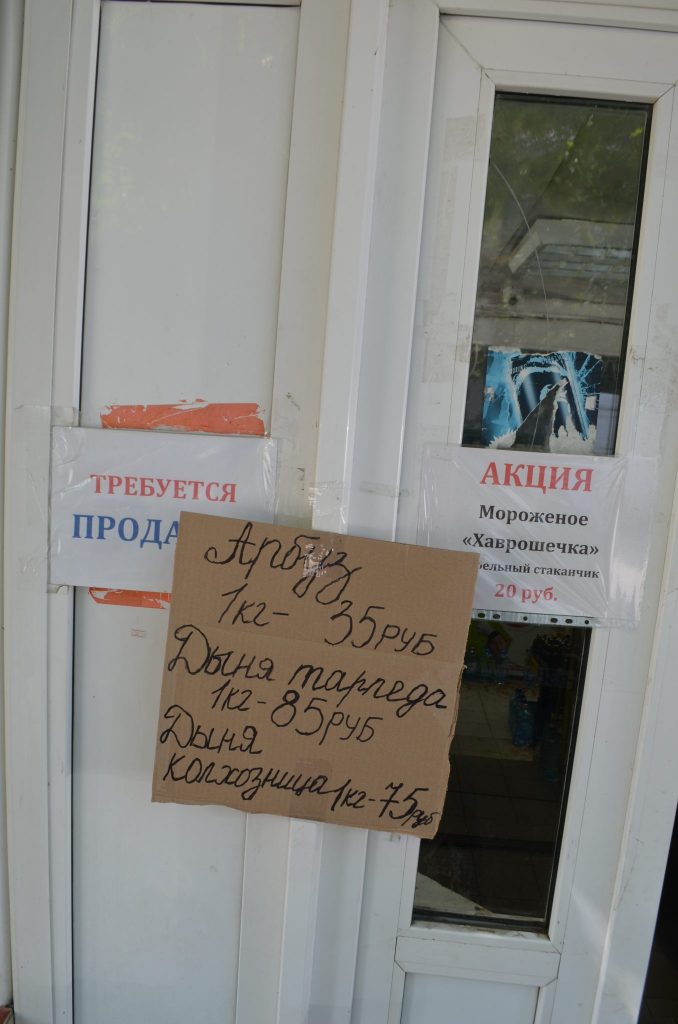 ТРЕБУЕТСЯ
АКЦИЯ
Мороженое
«Хаврошечка»
стаканчик
20 руб.
Арбуз
1кг- 35руб
Дыня тарпеда
1кг-85руб
Дыня
колхозница 1кг-75руб